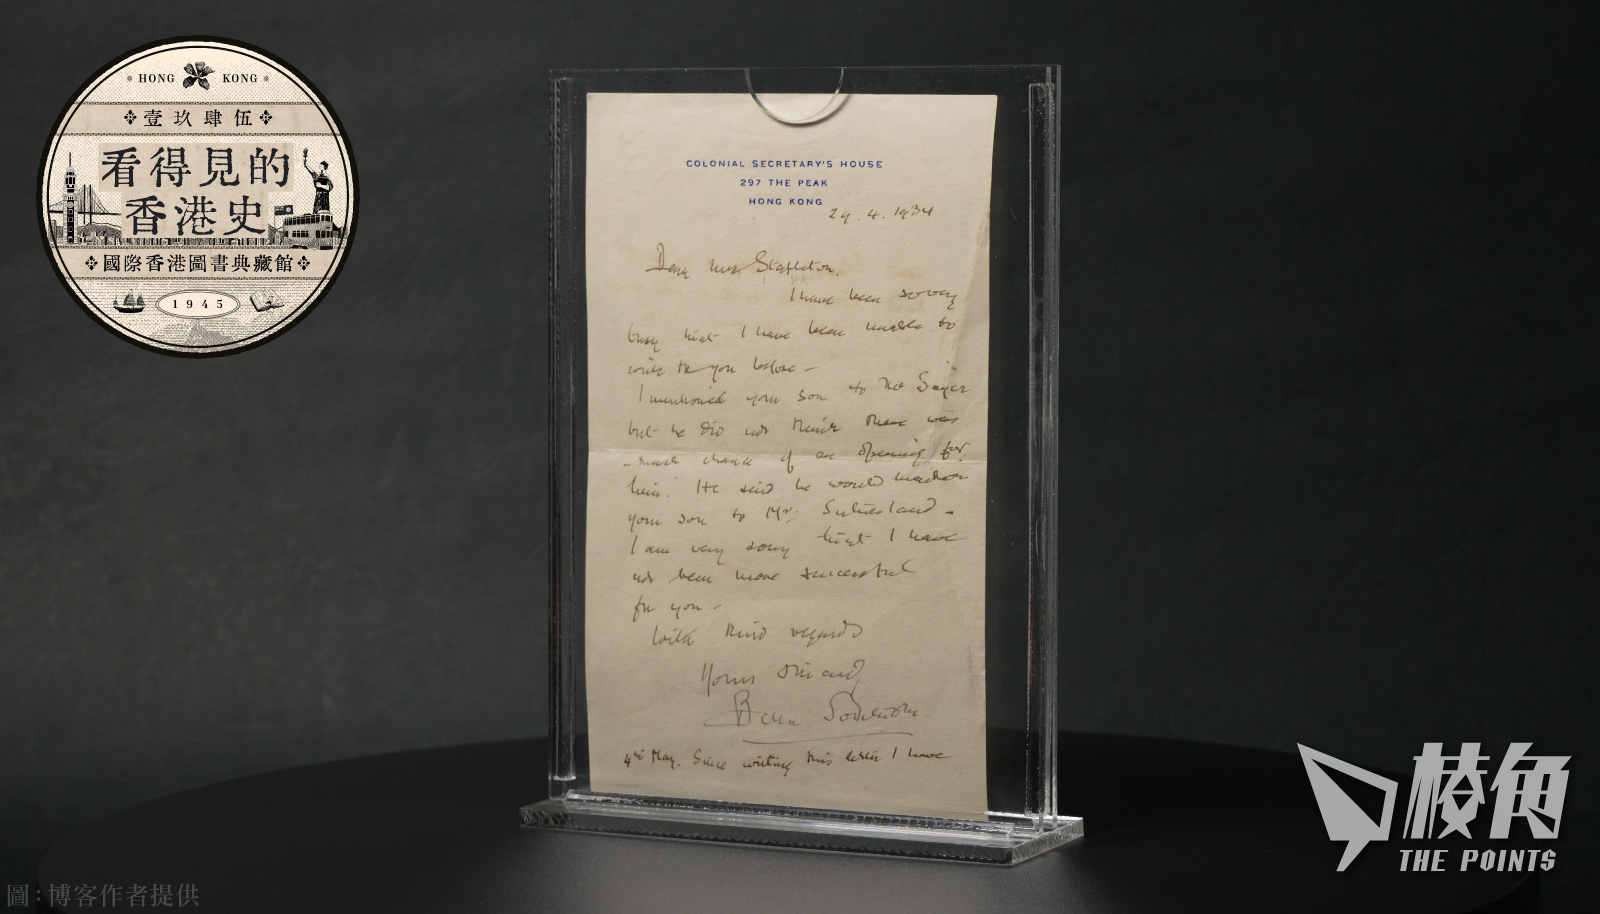 HONG KONG
壹玖肆伍
看得見的
香港史
國際香港圖書典藏館
1945
COLONIAL SECRETARY'S HOUSE
297 THE PEAK
HONG KONG
29.4.1934
Dear Mrs Stapleton.
I have been so very
busy that I have been unable to
write to you before -
I mentioned your son to
but he did not think there was
much chance of an opening for
him. He said he would mention
your son to Mr. Sutherland -
I am very sorry that I have
not been more successful
for you -
With kind regards
Yours sincerely
4th May. Since writing this letter I have
棱角
THE POINTS
圖:博客作者提供